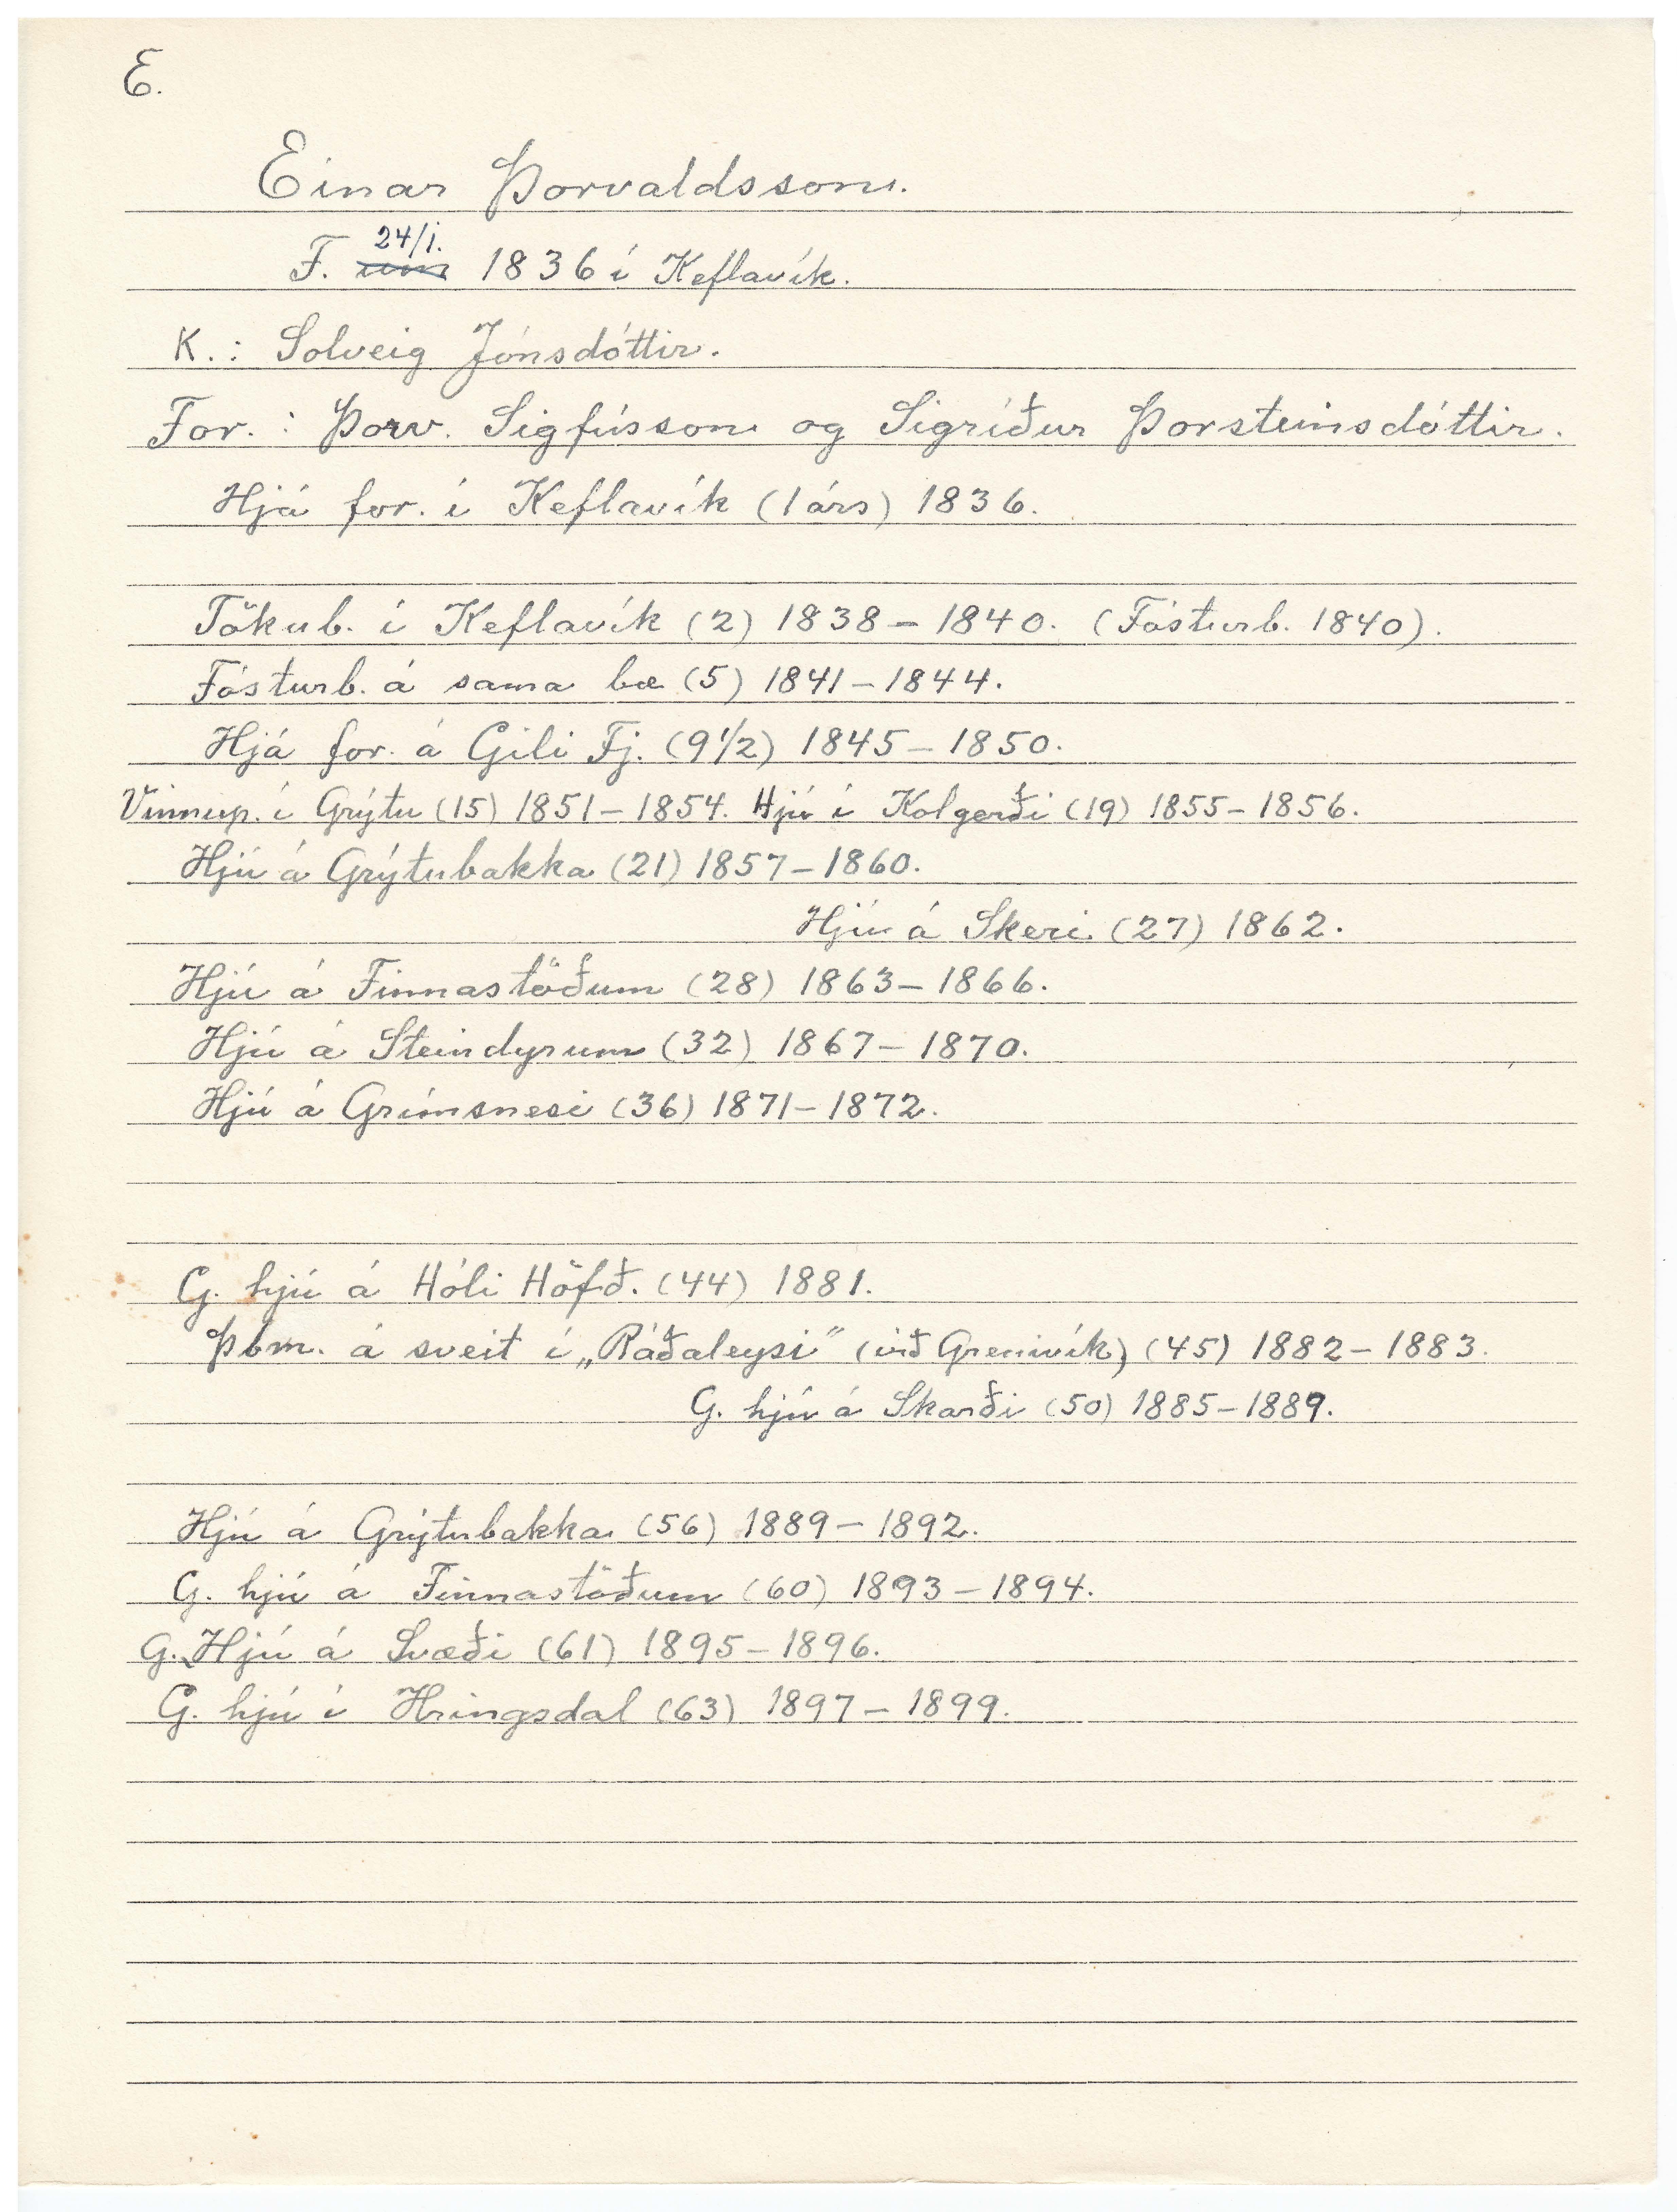 E.
Einar Þorvaldsson.
24/1.
F. um 1836 í Keflavík.
K.: Solveig Jónsdóttir.
For.: Þorv. Sigfússon og Sigríður Þorsteinsdóttir.
Hjá for. í Keflavík (1 árs) 1836.
Tökub. í Keflavík (2) 1838 – 1840. (Fósturb. 1840).
Fósturb. á sama bæ (5) 1841 – 1844.
Hjá for. á Gili Fj. (9 1/2) 1845 – 1850.
Vinnup. í Grýtu (15) 1851 – 1854. Hjú í Kolgerði (19) 1855 – 1856.
Hjú á Grýtubakka (21) 1857 – 1860.
Hjú á Skeri (27) 1862.
Hjú á Finnastöðum (28) 1863 – 1866.
Hjú á Steindyrum (32) 1867 – 1870.
Hjú á Grímsnesi (36) 1871 – 1872.
G. hjú á Hóli Höfð. (44) 1881.
Þbm. á sveit í „Ráðaleysi" (við Grenivík) (45) 1882 – 1883.
G. hjú á Skarði (50) 1885 – 1889.
Hjú á Grýtubakka (56) 1889 – 1892.
G. hjú á Finnastöðum (60) 1893 – 1894.
G. Hjú á Svæði (61) 1895 – 1896.
G. hjú í Hringsdal (63) 1897 – 1899.